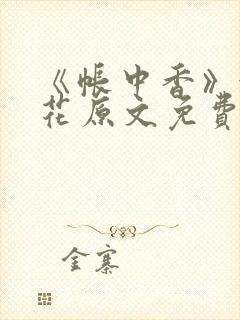 《帐中香》
花原文免费
金寨